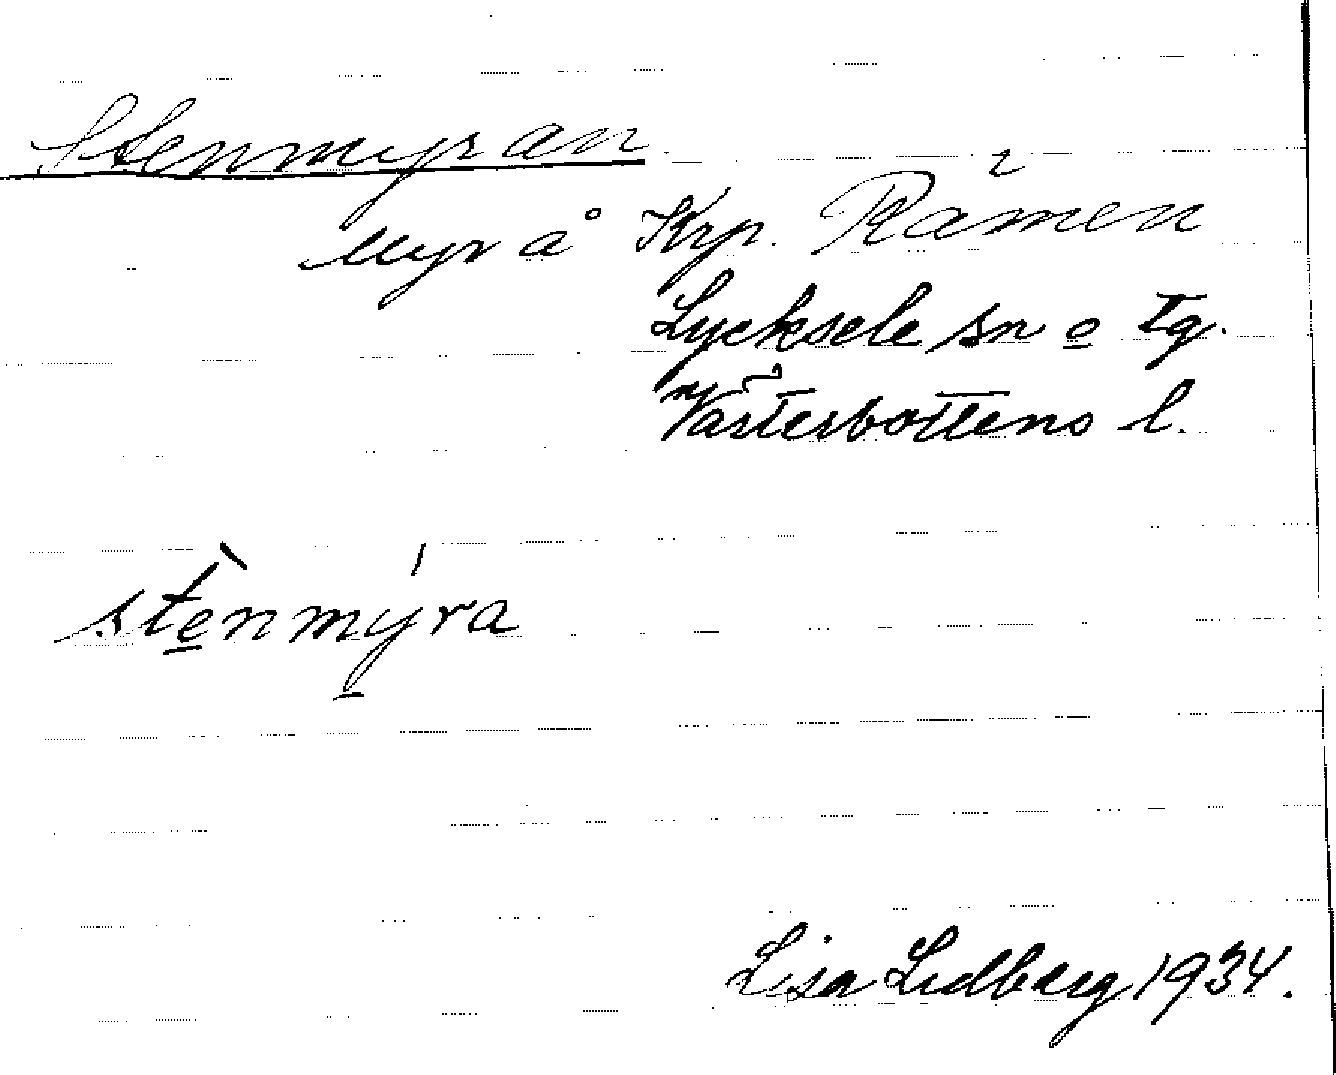 Stenmyran
Myr å Krp. Rämen
Lycksele sn o tg.
Västerbottens l.
stènmýra
Lisa Lidberg 1934.